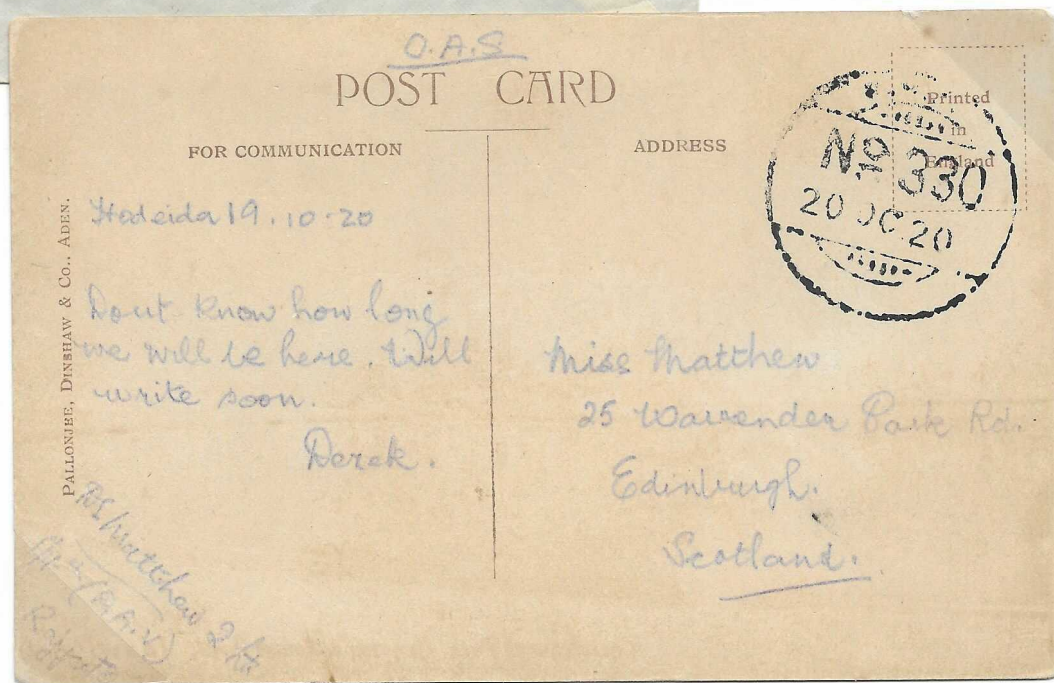 O.A.S
POST CARD
FOR COMMUNICATION
ADDRESS
Printed
in
England
No 330
20 OC 20
PALLONJEE, DINSHAW & CO., ADEN.
Hodeida 19.10-20
Dont know how long
we will be here. Will
write soon.
Derek.
Miss Matthew
25 Warrender Park Rd.
Edinburgh.
Scotland.
Matthew 2/Lt